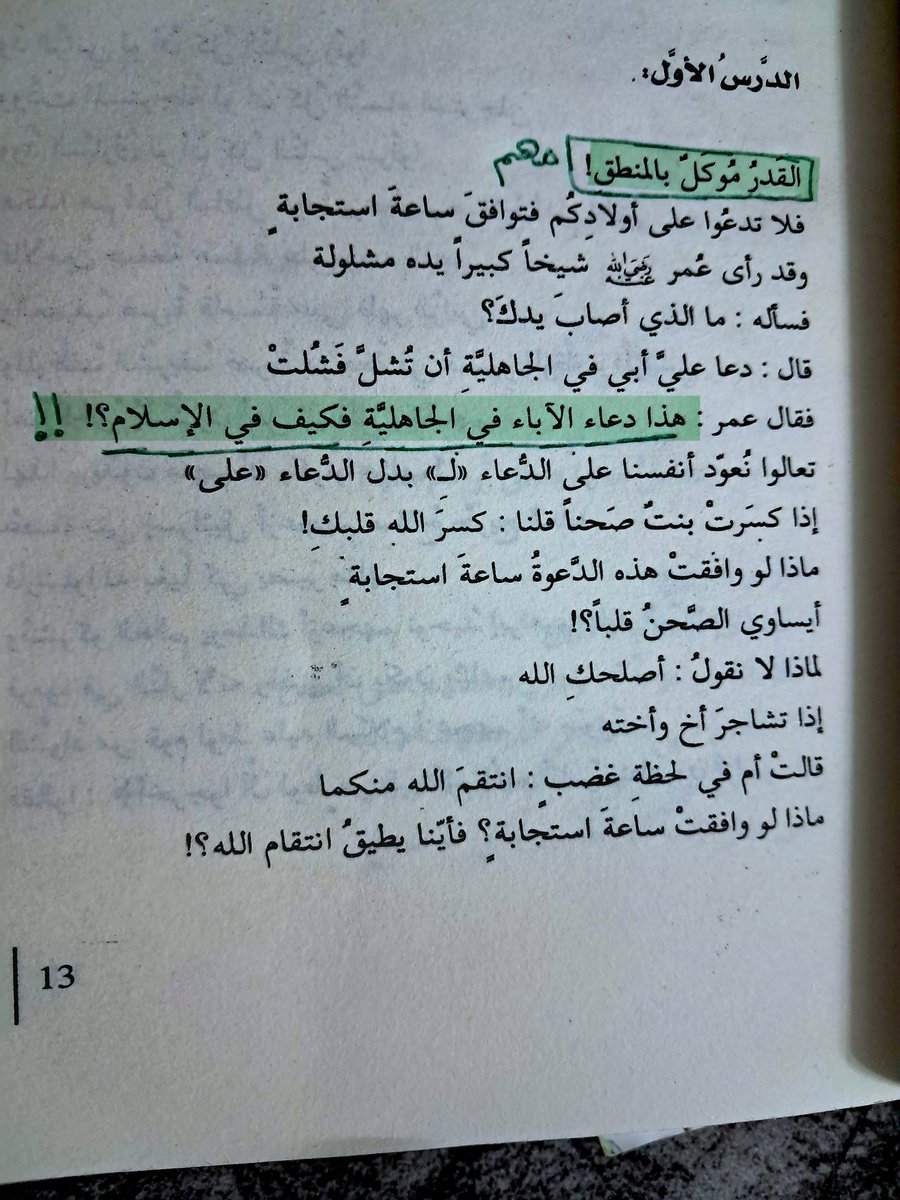 الدَّرسُ الأوَّل:
القَدرُ مُوكَلٌ بالمنطق! مهم
فلا تدعُوا على أولادِكُم فتوافقَ ساعةَ استجابةٍ
وقد رأى عُمر رضي الله عنه شيخاً كبيراً يده مشلولة
فسأله : ما الذي أصابَ يدكَ؟
قال : دعا عليَّ أبي في الجاهليَّةِ أن تُشلَّ فَشُلتْ
فقال عمر : هذا دعاء الآباء في الجاهليَّةِ فكيف في الإسلام؟! !!
تعالوا نُعوّد أنفسنا على الدُّعاء «لـِ» بدل الدُّعاء «على»
إذا كسَرَتْ بنتٌ صَحناً قلنا : كسرَ الله قلبكِ!
ماذا لو وافقتْ هذه الدَّعوةُ ساعةَ استجابةٍ
أيساوي الصَّحنُ قلباً؟!
لماذا لا نقولُ : أصلحكِ الله
إذا تشاجرَ أخ وأخته
قالتْ أم في لحظةِ غضبٍ : انتقمَ الله منكما
ماذا لو وافقتْ ساعةَ استجابةٍ؟ فأيّنا يطيقُ انتقام الله؟!
13